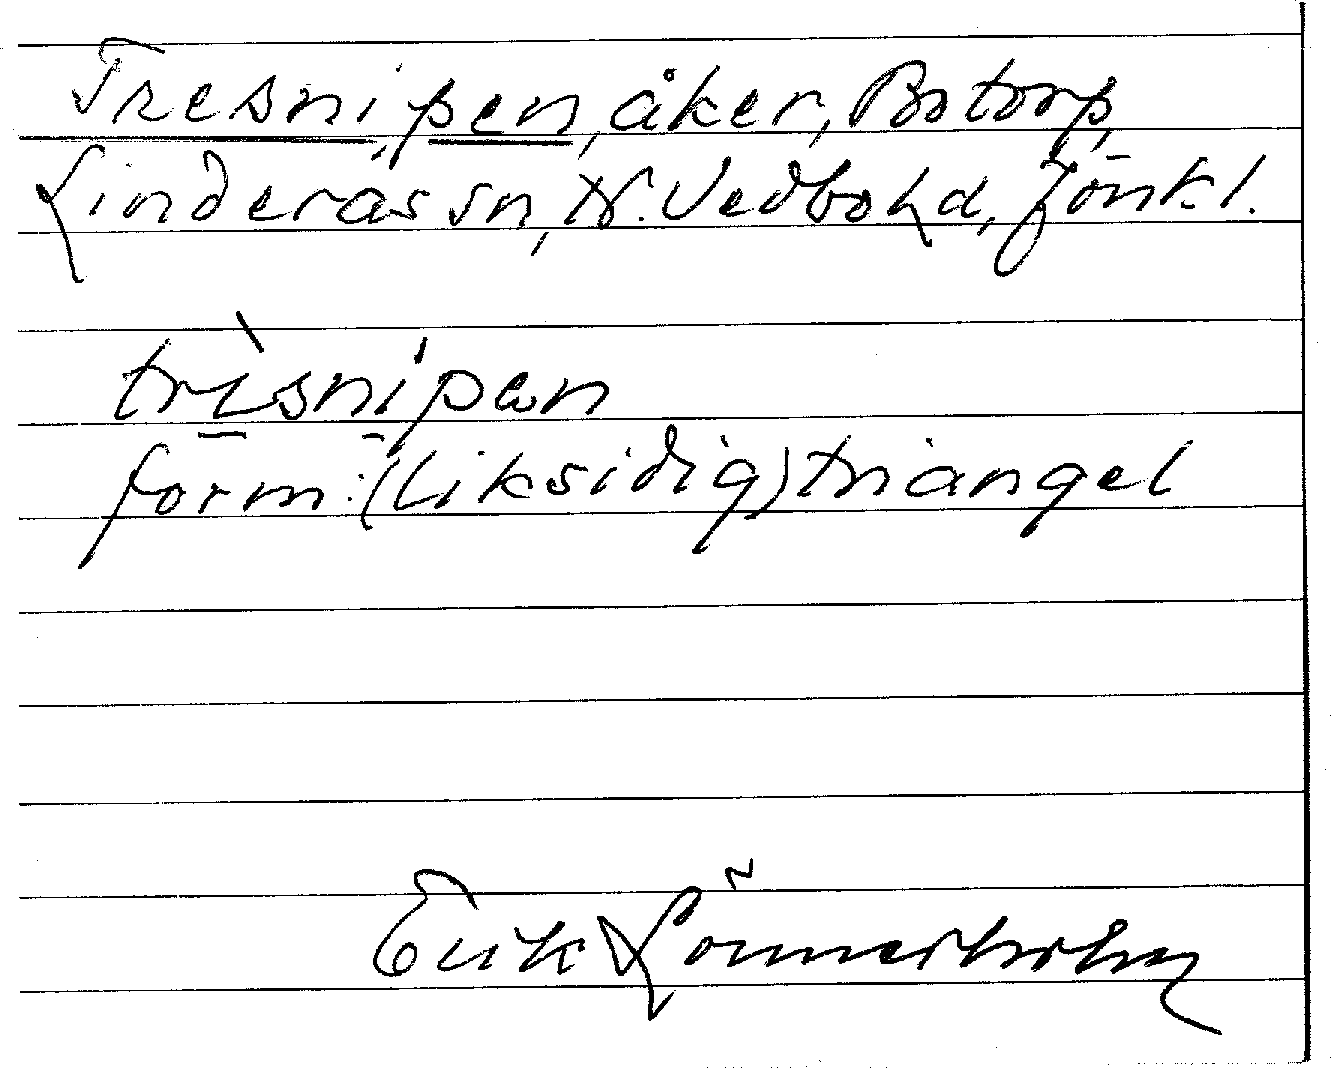 Tresnipen, åker, Botorp,
Linderås sn, N. Vedbo hd, Jönk. l.
trìsnípan
form: (liksidig) triangel
Erik Lönnerholm